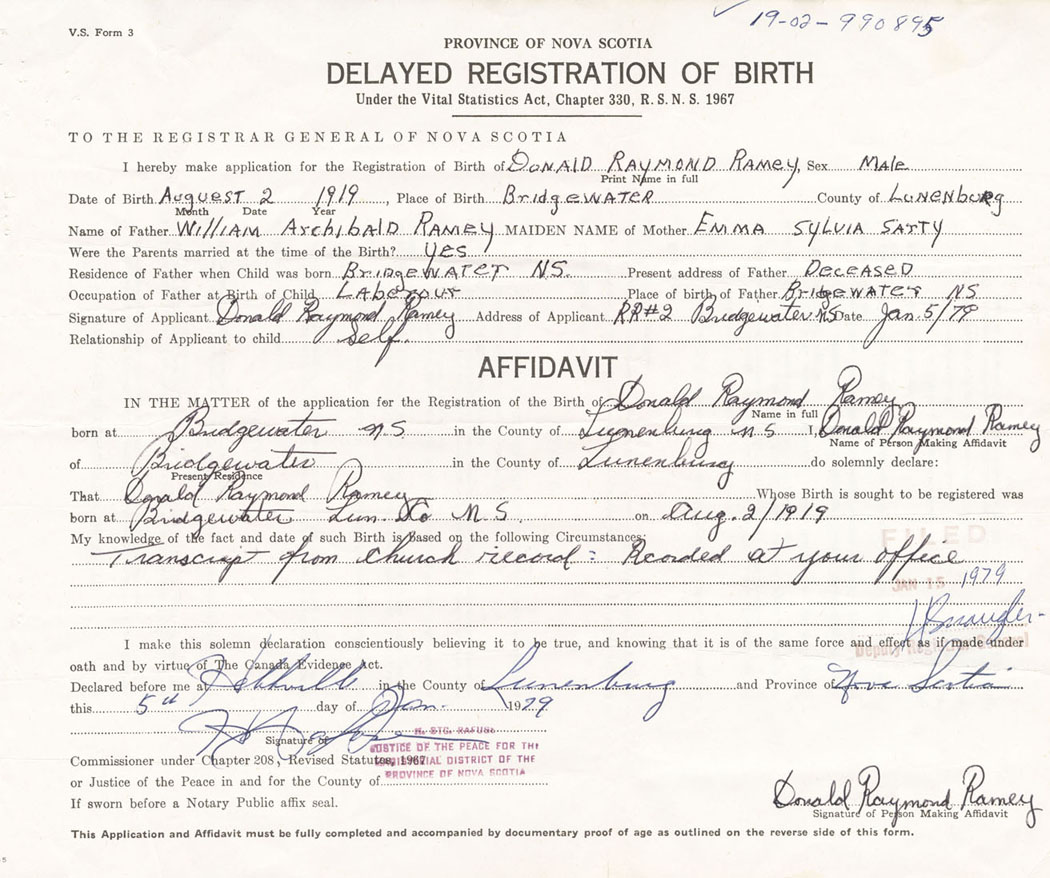 19-02-990895
V.S. Form 3
PROVINCE OF NOVA SCOTIA
DELAYED REGISTRATION OF BIRTH
Under the Vital Statistics Act, Chapter 330, R.S.N.S. 1967
TO THE REGISTRAR GENERAL OF NOVA SCOTIA
I hereby make application for the Registration of Birth of DONALD RAYMOND RAMEY, Sex MALE
Print Name in full
Date of Birth Auguest 2 1919, Place of Birth BridgeWATER County of LUNENBURg
Month Date Year
Name of Father William Archibald Ramey MAIDEN NAME of Mother EMMA SYLVIA SARTY
Were the Parents married at the time of the Birth? Yes
Residence of Father when Child was born BridgeWATER NS. Present address of Father DECEASED
Occupation of Father at Birth of Child LAberour Place of birth of Father BridgeWATER NS
Signature of Applicant Donald Raymond Ramey Address of Applicant RR#2 Bridgewater NS Date Jan. 5/79
Relationship of Applicant to child self.
AFFIDAVIT
IN THE MATTER of the application for the Registration of the Birth of Donald Raymond Ramey
Name in full
born at Bridgewater N.S. in the County of Lunenburg N S I, Donald Raymond Ramey
Name of Person Making Affidavit
of Bridgewater in the County of Lunenburg do solemnly declare:
Present Residence
That Donald Raymond Ramey Whose Birth is sought to be registered was
born at Bridgewater Lun. Co N.S. on Aug. 2/1919
My knowledge of the fact and date of such Birth is Based on the following Circumstances:
Transcript from Church record: Recorded at your office
FILED
JAN 15 1979
Deputy Registrar General
I make this solemn declaration conscientiously believing it to be true, and knowing that it is of the same force and effect as if made under
oath and by virtue of The Canada Evidence Act.
Declared before me at in the County of Lunenburg and Province of Nova Scotia
this 5th day of Jan. 1979
Signature of
JUSTICE OF THE PEACE FOR THE
MUNICIPAL DISTRICT OF THE
PROVINCE OF NOVA SCOTIA
Commissioner under Chapter 208, Revised Statutes, 1967
or Justice of the Peace in and for the County of
If sworn before a Notary Public affix seal.
Donald Raymond Ramey
Signature of Person Making Affidavit
This Application and Affidavit must be fully completed and accompanied by documentary proof of age as outlined on the reverse side of this form.